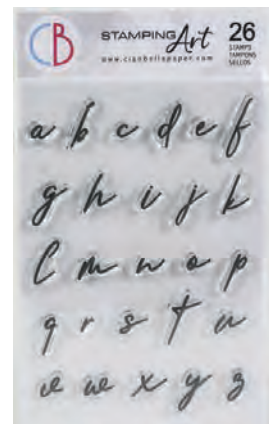 CB
STAMPING Art
www.ciaobellapaper.com
26
STAMPS
TAMPONS
SELLOS
a b c d e f
g h i j k
l m n o p
q r s t u
v w x y z